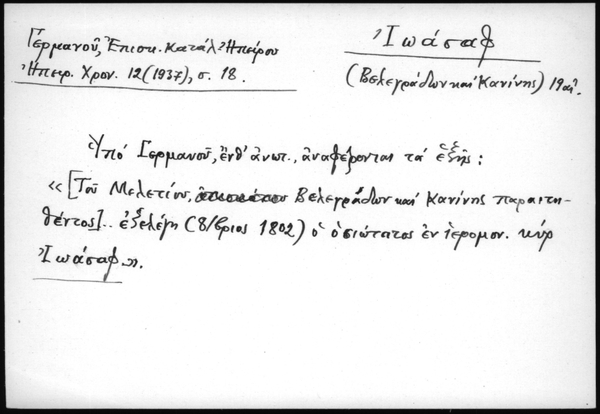 Γερμανοῦ, Ἐπισκ. Κατάλ. Ἠπείρου
Ἠπειρ. Χρον. 12 (1937), σ. 18.
Ἰωάσαφ
(Βελεγράδων καὶ Κανίνης) 19 αἰ.
Ὑπό Γερμανοῦ, ἔνθ' ἀνωτ., ἀναφέρονται τά ἑξῆς:
«[Τοῦ Μελετίου, Βελεγράδων καί Κανίνης παραιτη-
θέντος].. ἐξελέγη (8/βριος 1802) ὁ ὁσιώτατος ἐν ἱερομον. κύρ
Ἰωάσαφ».